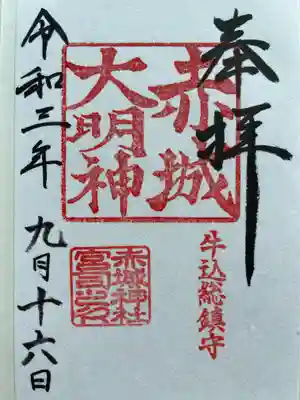 奉拝
赤城
大明神
牛込総鎮守
赤城神社
宮司之印
令和三年 九月十六日